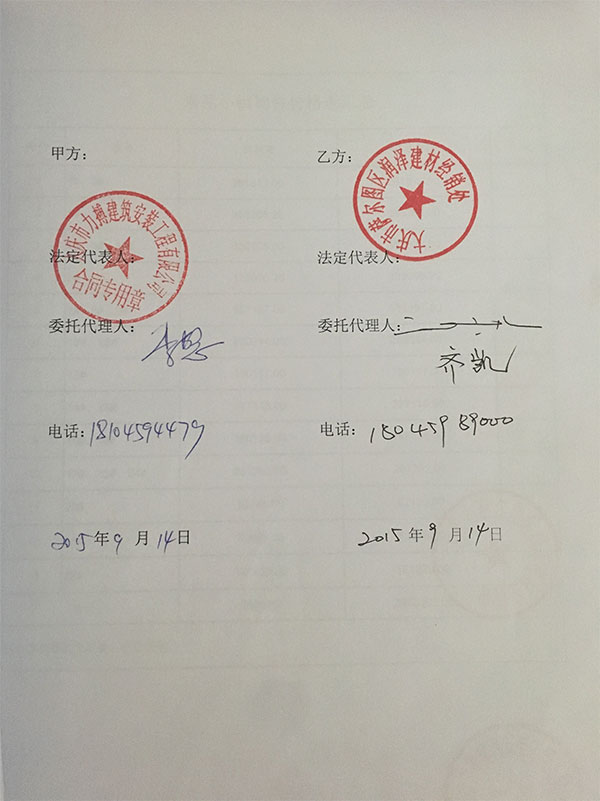 甲方：
乙方：
大庆市萨尔图区润泽建材经销处
大庆市力搏建筑安装工程有限公司
合同专用章
法定代表人：
法定代表人：
委托代理人：
委托代理人：
齐凯
电话：18104594479
电话：18045989000
2015年9月14日
2015年9月14日